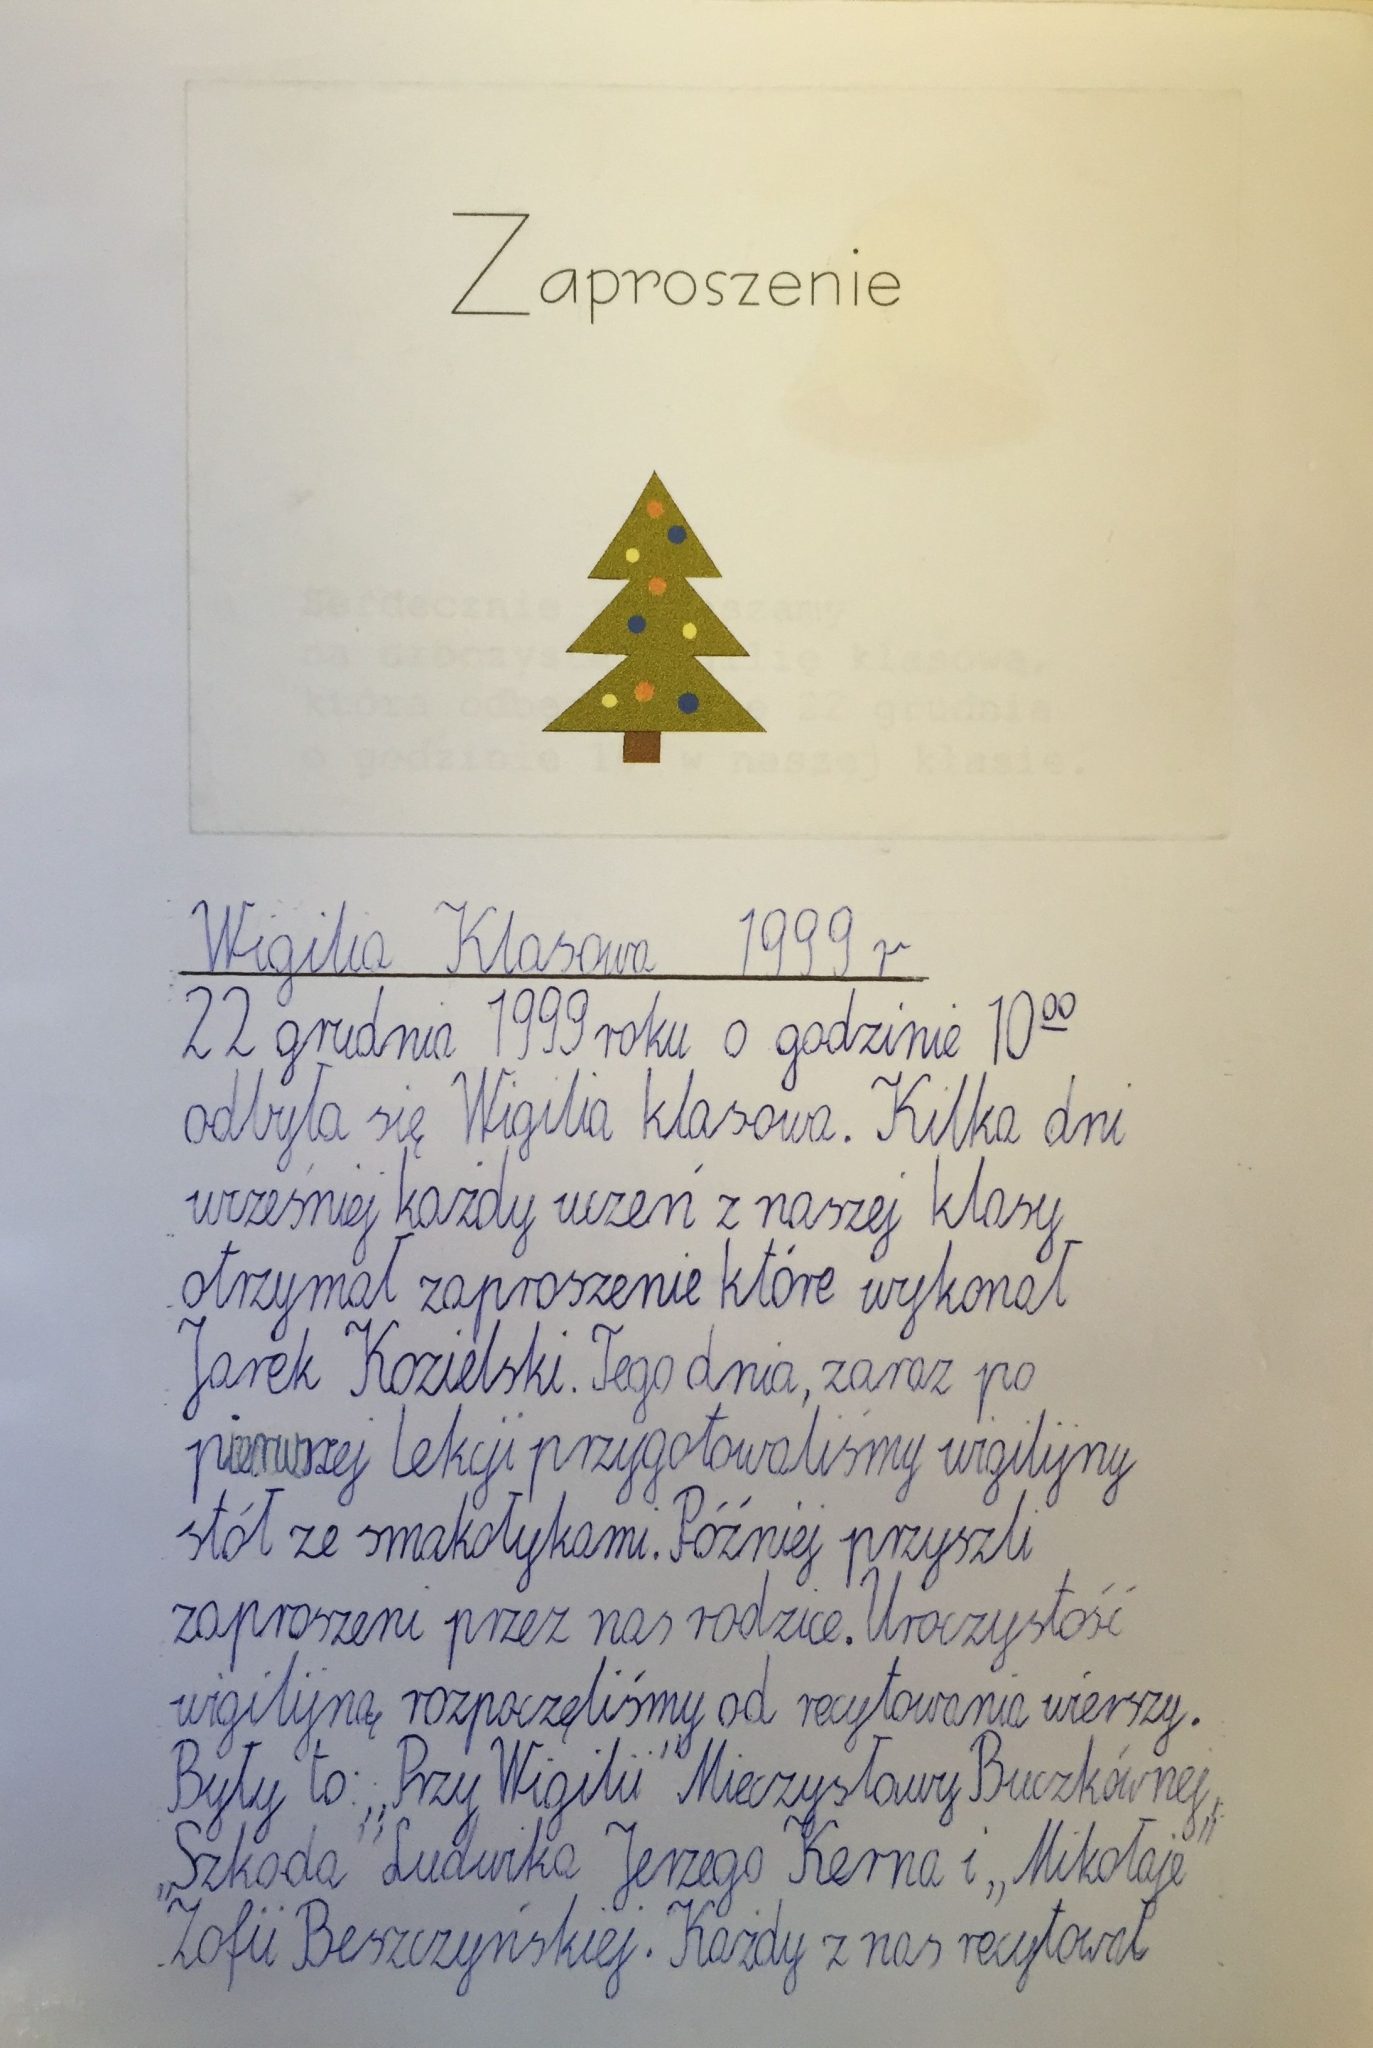 Zaproszenie
Serdecznie
klasową,
22 grudnia
o godzinie w naszej klasie.
Wigilia Klasowa 1999 r
22 grudnia 1999 roku o godzinie 10⁰⁰
odbyła się Wigilia klasowa. Kilka dni
wcześniej każdy uczeń z naszej klasy
otrzymał zaproszenie które wykonał
Jarek Kozielski. Tego dnia, zaraz po
pierwszej lekcji przygotowaliśmy wigilijny
stół ze smakołykami. Później przyszli
zaproszeni przez nas rodzice. Uroczystość
wigilijną rozpoczęliśmy od recytowania wierszy.
Były to: „Przy Wigilii" Mieczysławy Buczkównej,
„Szkoda" Ludwika Jerzego Kerna i „Mikołaje"
Zofii Beszczyńskiej. Każdy z nas recytował